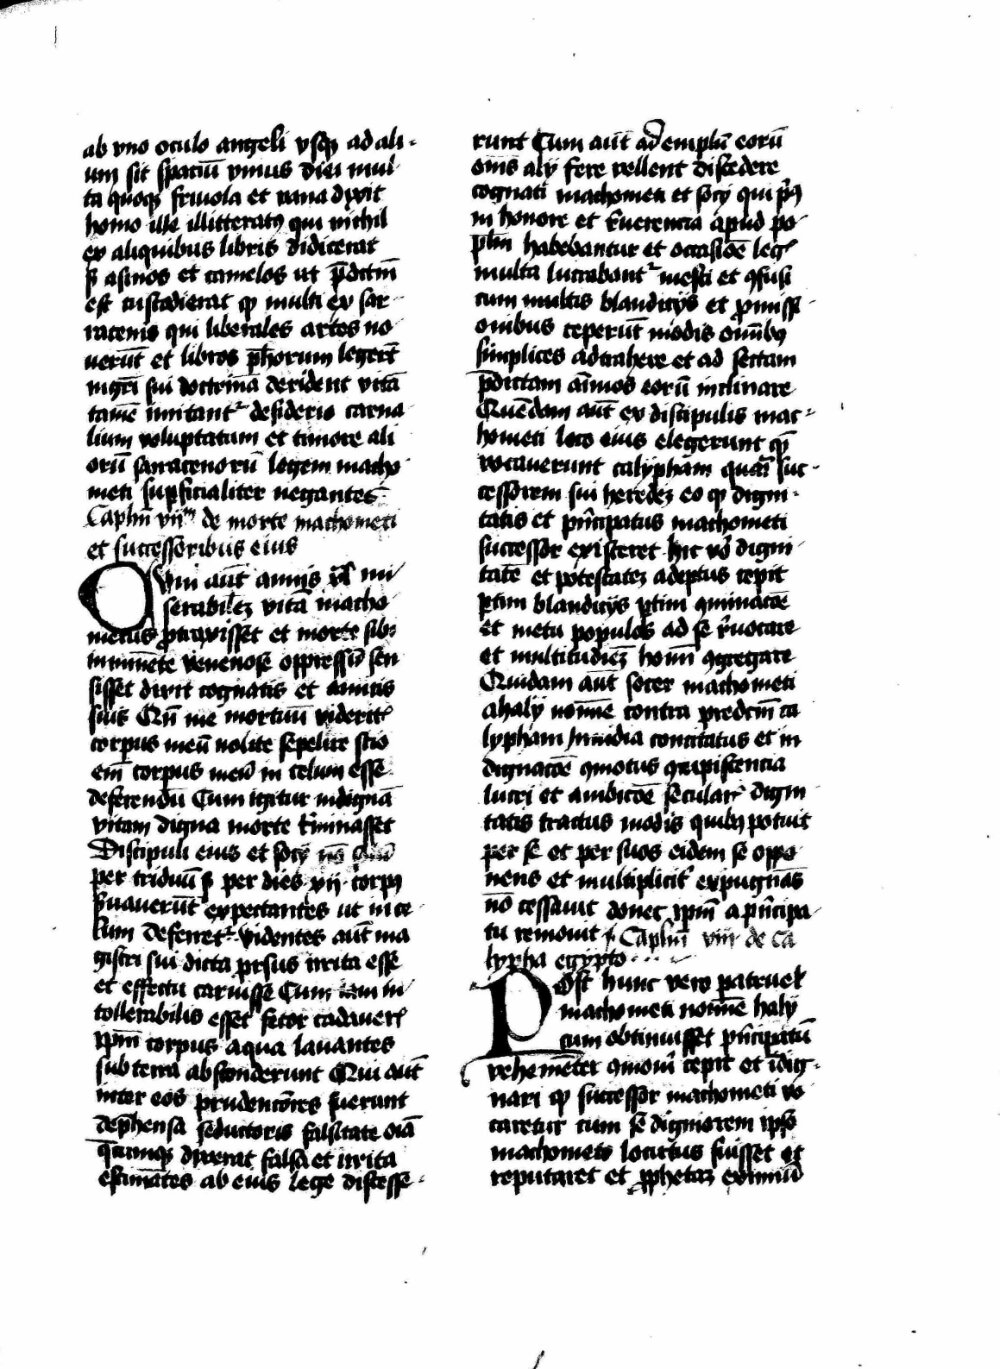 ab vno oculo angeli vsqꝫ ad ali-
um sit spatiū vnius diei mul
ta quoqꝫ friuola et vana dixit
homo ille illitteratꝰ qui nichil
ex aliquibus libris didicerat
sꝫ asinos et camelos ut p̄dictū
est custodierat qꝫ multi ex sar-
racenis qui liberales artes no
uerūt et libros ph̄orum legerūt
mgr̄i sui doctrinā derident vitā
tamē imitantᷣ desiderio carna
lium voluptatum et timore ali
orū sarracenorū legem macho
meti suꝑficialiter negantes
Caplm̄ vijm de morte machometi
et successoribus eius
Cum aūt annis
serabilez vitā macho
metus ꝓtraxisset et morte sibi
iminēte venenose oppressū sen
sisset dixit cognatis et amicis
suis Qn̄ me mortuū videritᷤ
corpus meū nolite sepelire scio
em̄ corpus meū in celum esse
deferendū Cum igitur indignā
vitam digna morte t̄minasset
Discipuli eius et socij nō
per triduū sꝫ per dies xij corpꝰ
ẜuauerūt expectantes ut in ce-
lum deferretᷣ videntes aūt ma
gistri sui dicta ꝓrsus irrita esse
et effectu caruisse Cum iam in
tollerabilis esset fetor cadaueris
ipm̄ corpus aqua lauantes
sub terra absconderunt Qui aūt
inter eos prudenc̄ores fuerunt
dep̄hensa seductoris falsitate oīa
quecūqꝫ dixerat falsa et irrita
estimātes ab eius lege discesse-
runt Cum aūt ad exemplū eorū
om̄s alij fere vellent discedere
cognati machometi et socij qui p̄us
in honore et r̄uerencia apud po
pl̄m habebantur et occasiōe legis
multa lucrabantᷣ mesti et ꝯfusi
cum multis blanditijs et ꝓmissi
onibus ceperūt modis om̄ibꝫ
simplices adtrahere et ad sectam
p̄dictam aīmos eorū inclinare
Quēdam aūt ex discipulis mac-
hometi loco eius elegerunt quē
vocauerunt calypham quasi suc-
cessorem sui heredez eo qꝫ digni-
tatis et pn̄cipatus machometi
successor existeret hic vo̊ digni
tatē et potestatez adeptus cepit
ꝑtim blanditijs ꝑtim ꝯminacōe
et metu populos ad se r̄uocare
et multitudiez hoīm ꝯgregare
Quidam aūt socer machometi
ahaly noīe contra predcm̄ ca
lypham inuidia concitatus et in
dignacōe ꝯmotus ꝯcupiscencia
lucri et ambicōe secularis digni
tatis tractus modis quibꝫ potuit
per se et per suos eidem se oppo
nens et multiplicitᷣ expugnās
nō cessauit donec ipm̄ a pn̄cipa-
tu remouit Caplm̄ viij de ca
lypha egypto
Post hunc vero patruelis
machometi noīe haly
cum obtinuisset pn̄cipatū
vehemēter ꝯmoūi cepit et idig-
nari qꝫ successor machometi vo
caretur cum se digniorem ipso
machometo locutus fuisset et
reputaret et ꝓphetaz eximiū